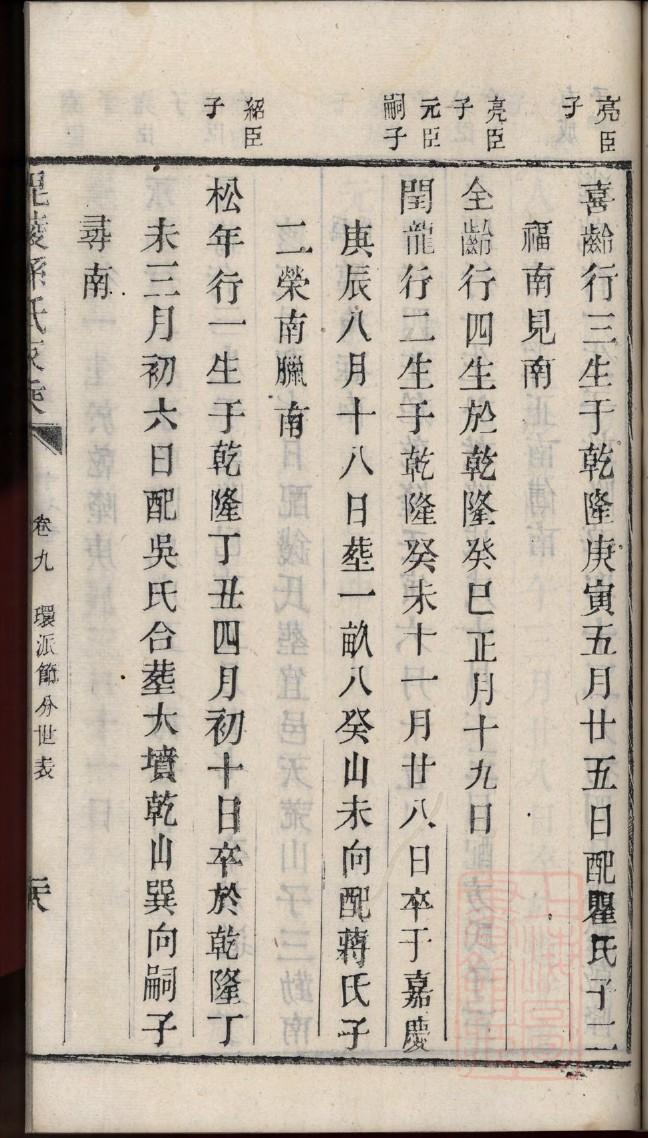 亮臣子
喜齡行三生于乾隆庚寅五月廿五日配瞿氏子二
福南見南
亮臣子
全齡行四生於乾隆癸巳正月十九日
元臣嗣子
閏龍行二生于乾隆癸未十一月廿八日卒于嘉慶
庚辰八月十八日塟一畝八癸山未向配蔣氏子
二榮南臘南
紹臣子
松年行一生于乾隆丁丑四月初十日卒於乾隆丁
未三月初六日配吳氏合塟大墳乾山巽向嗣子
尋南
毘陵孫氏家乘
卷九
環派節分世表